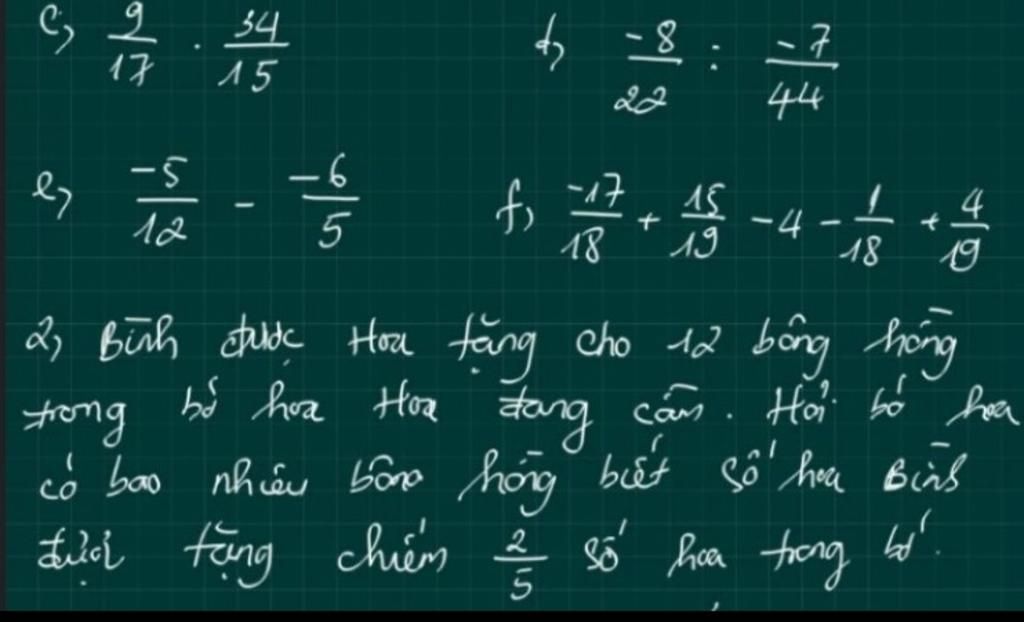 c, 9/17 . 34/15 d, -8/22 : -7/44
e, -5/12 - -6/5 f, -17/18 + 15/19 - 4 - 1/18 + 4/19
2, Bình được Hoa tặng cho 12 bông hồng
trong bó hoa Hoa đang cầm. Hỏi bó hoa
có bao nhiêu bông hồng biết số hoa Bình
được tặng chiếm 2/5 số hoa trong bó.